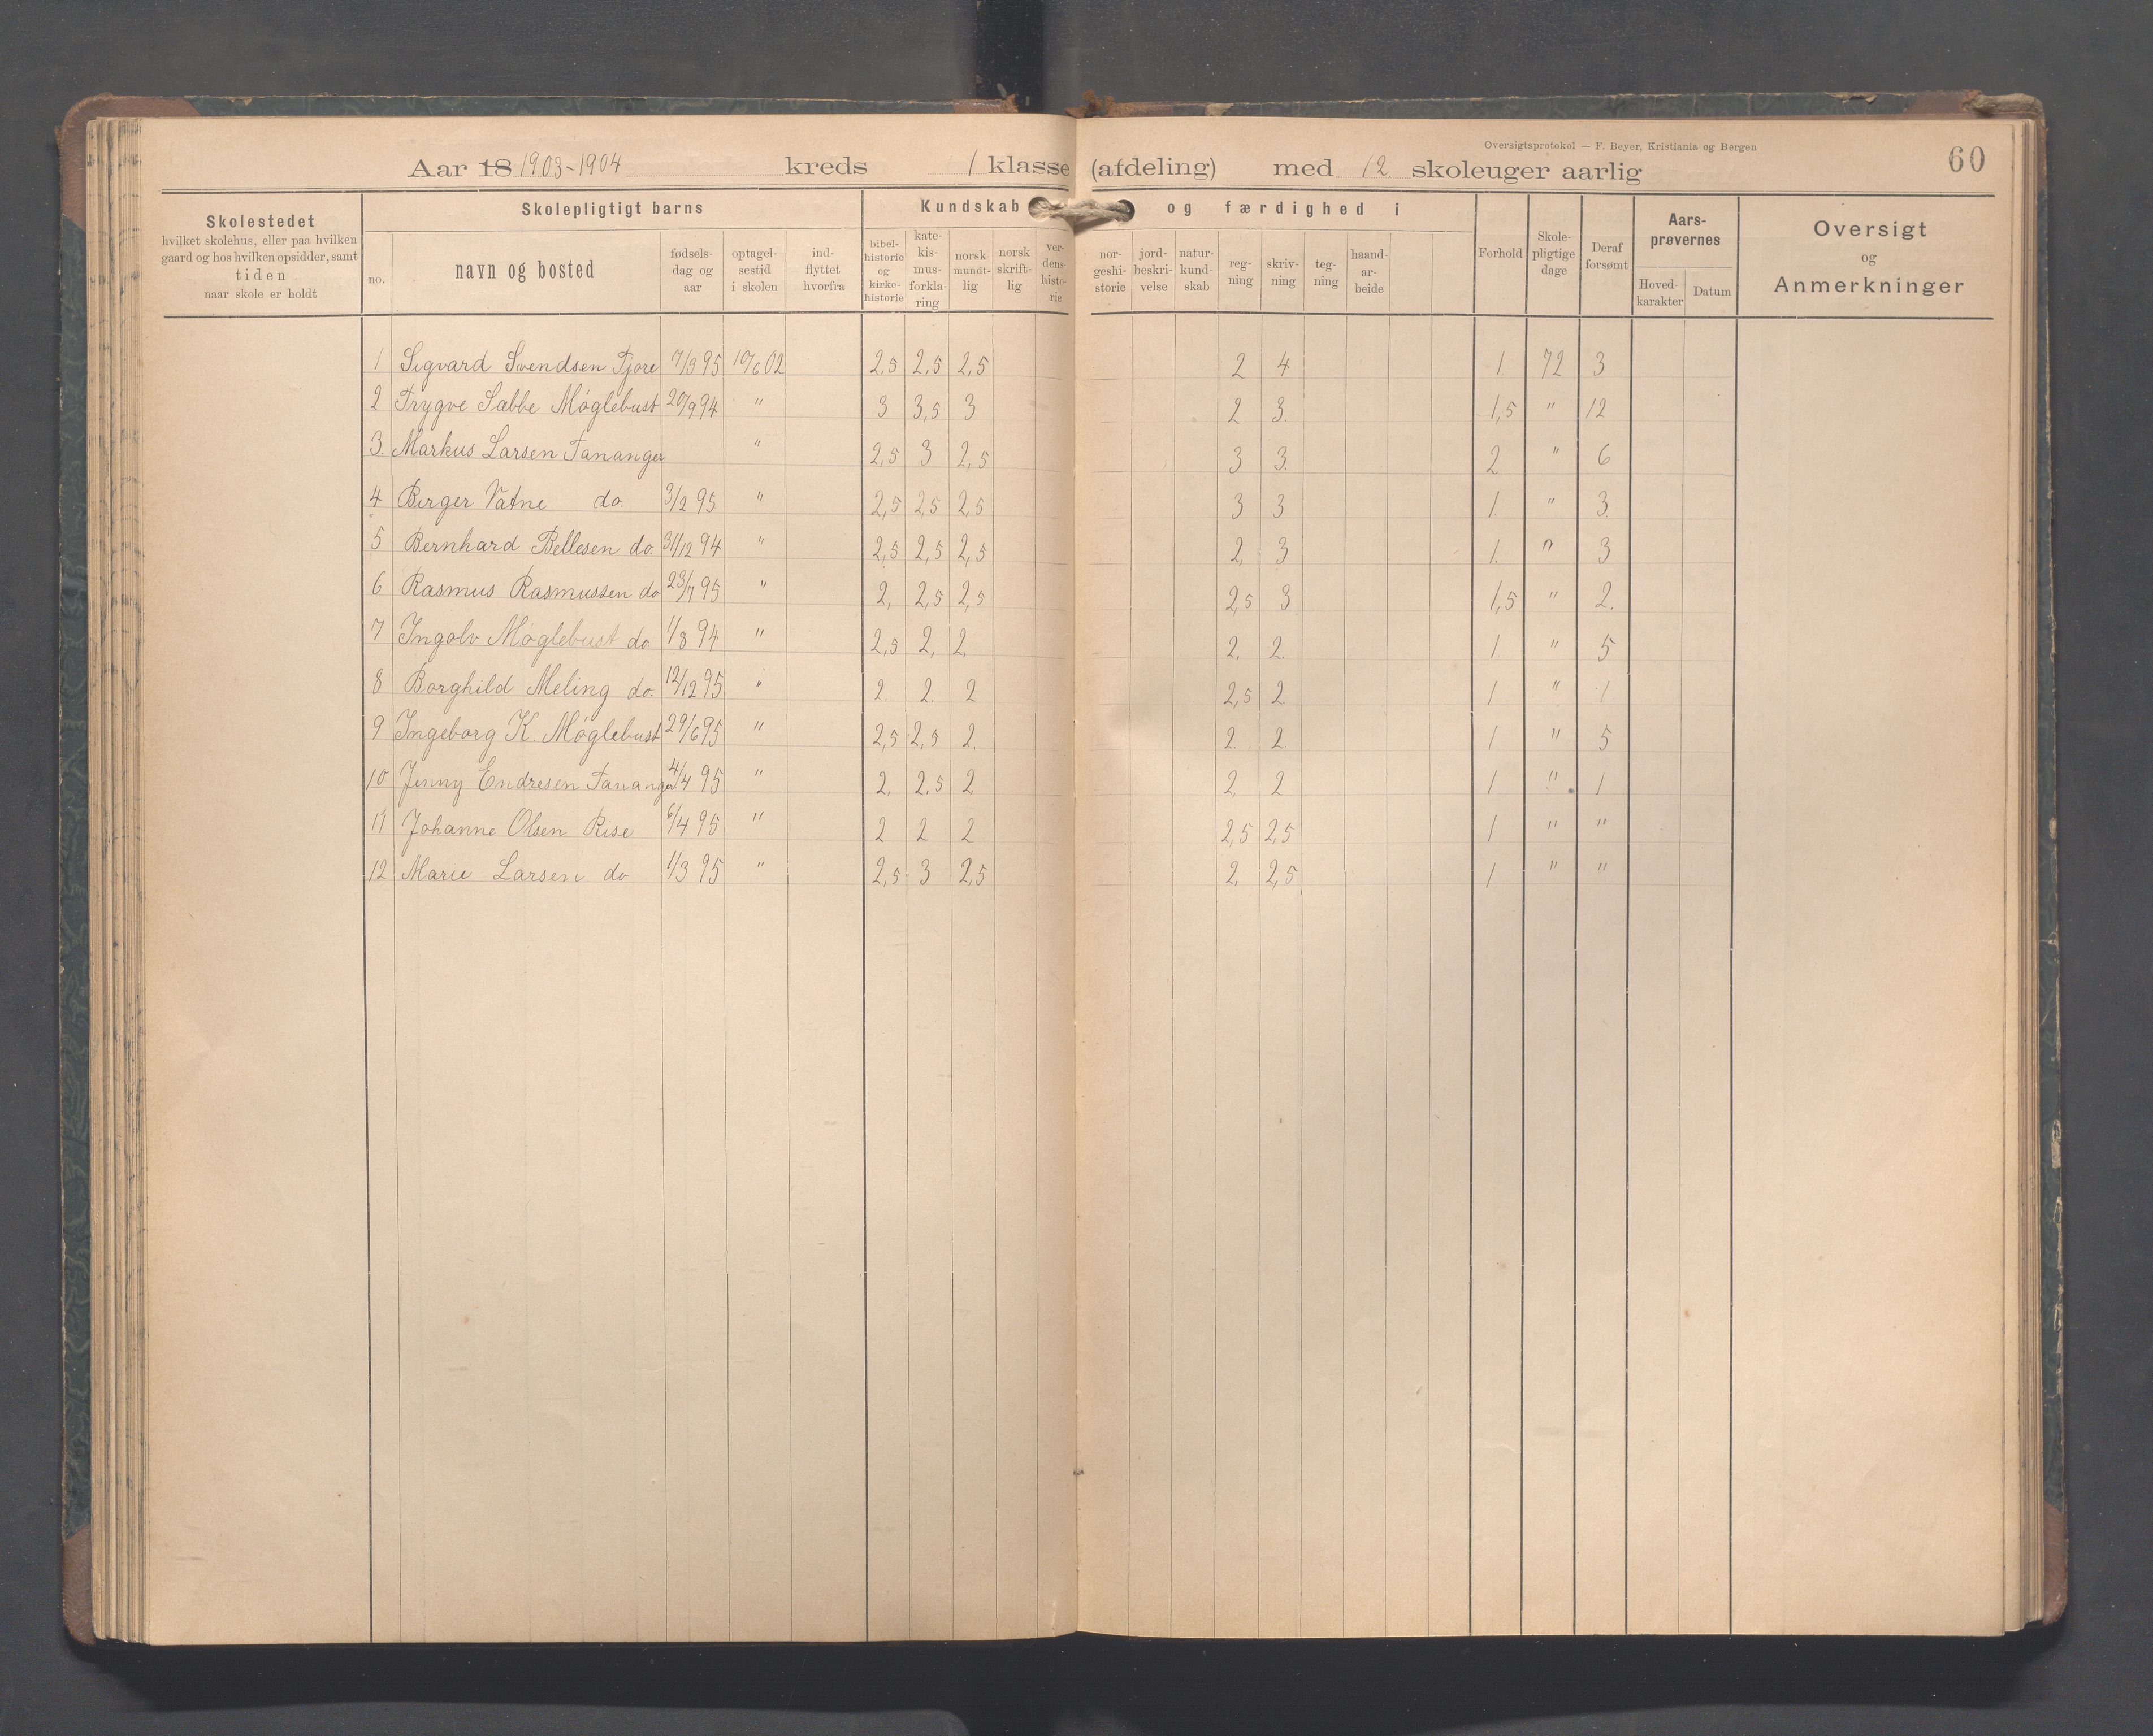 Oversigtsprotokol — F. Beyer, Kristiania og Bergen
60
Aar 18 1903-1904 kreds 1 klasse (afdeling) med 12 skoleuger aarlig
Skolestedet
hvilket skolehus, eller paa hvilken
gaard og hos hvilken opsidder, samt
tiden
naar skole er holdt
Skolepligtigt barns
no.
navn og bosted
fødsels-
dag og
aar
optagel-
sestid
i skolen
ind-
flyttet
hvorfra
Kundskab og færdighed i
bibel-
historie
og
kirke-
historie
kate-
kis-
mus-
forkla-
ring
norsk
mundt-
lig
norsk
skrift-
lig
ver-
dens-
histo-
rie
nor-
geshi-
storie
jord-
beskri-
velse
natur-
kund-
skab
reg-
ning
skriv-
ning
teg-
ning
haand-
ar-
beide
Forhold
Skole-
pligtige
dage
Deraf
forsømt
Aars-
prøvernes
Hoved-
karakter
Datum
Oversigt
og
Anmerkninger
1 Sigvard Svendsen Tjore 7/3 95 10/6 02 2,5 2,5 2,5 2 4 1 72 3
2 Trygve Sæbbe Møglebust 20/9 94 " 3 3,5 3 2 3. 1,5 " 12
3. Markus Larsen Tananger " 2,5 3 2,5 3 3. 2 " 6
4 Birger Vatne do. 3/2 95 " 2,5 2,5 2,5 3 3 1. " 3.
5 Bernhard Bellesen do. 31/12 94 " 2,5 2,5 2,5 2, 3 1. " 3
6 Rasmus Rasmussen do 23/7 95 " 2, 2,5 2,5 2,5 3 1,5 " 2.
7 Ingolv Møglebust do. 1/8 94 " 2,5 2, 2. 2. 2. 1 " 5
8 Borghild Meling do. 12/12 95 " 2. 2. 2 2,5 2. 1 " 1
9 Ingeborg K. Møglebust 29/6 95 " 2,5 2,5 2. 2. 2 1 " 5
10 Jenny Endresen Tananger 4/4 95 " 2. 2.5 2. 2. 2 1 " 1
11 Johanne Olsen Risе 6/4 95 " 2 2 2 2,5 2,5 1 " "
12 Marie Larsen do 1/3 95 " 2,5 3 2,5 2, 2,5 1 " "